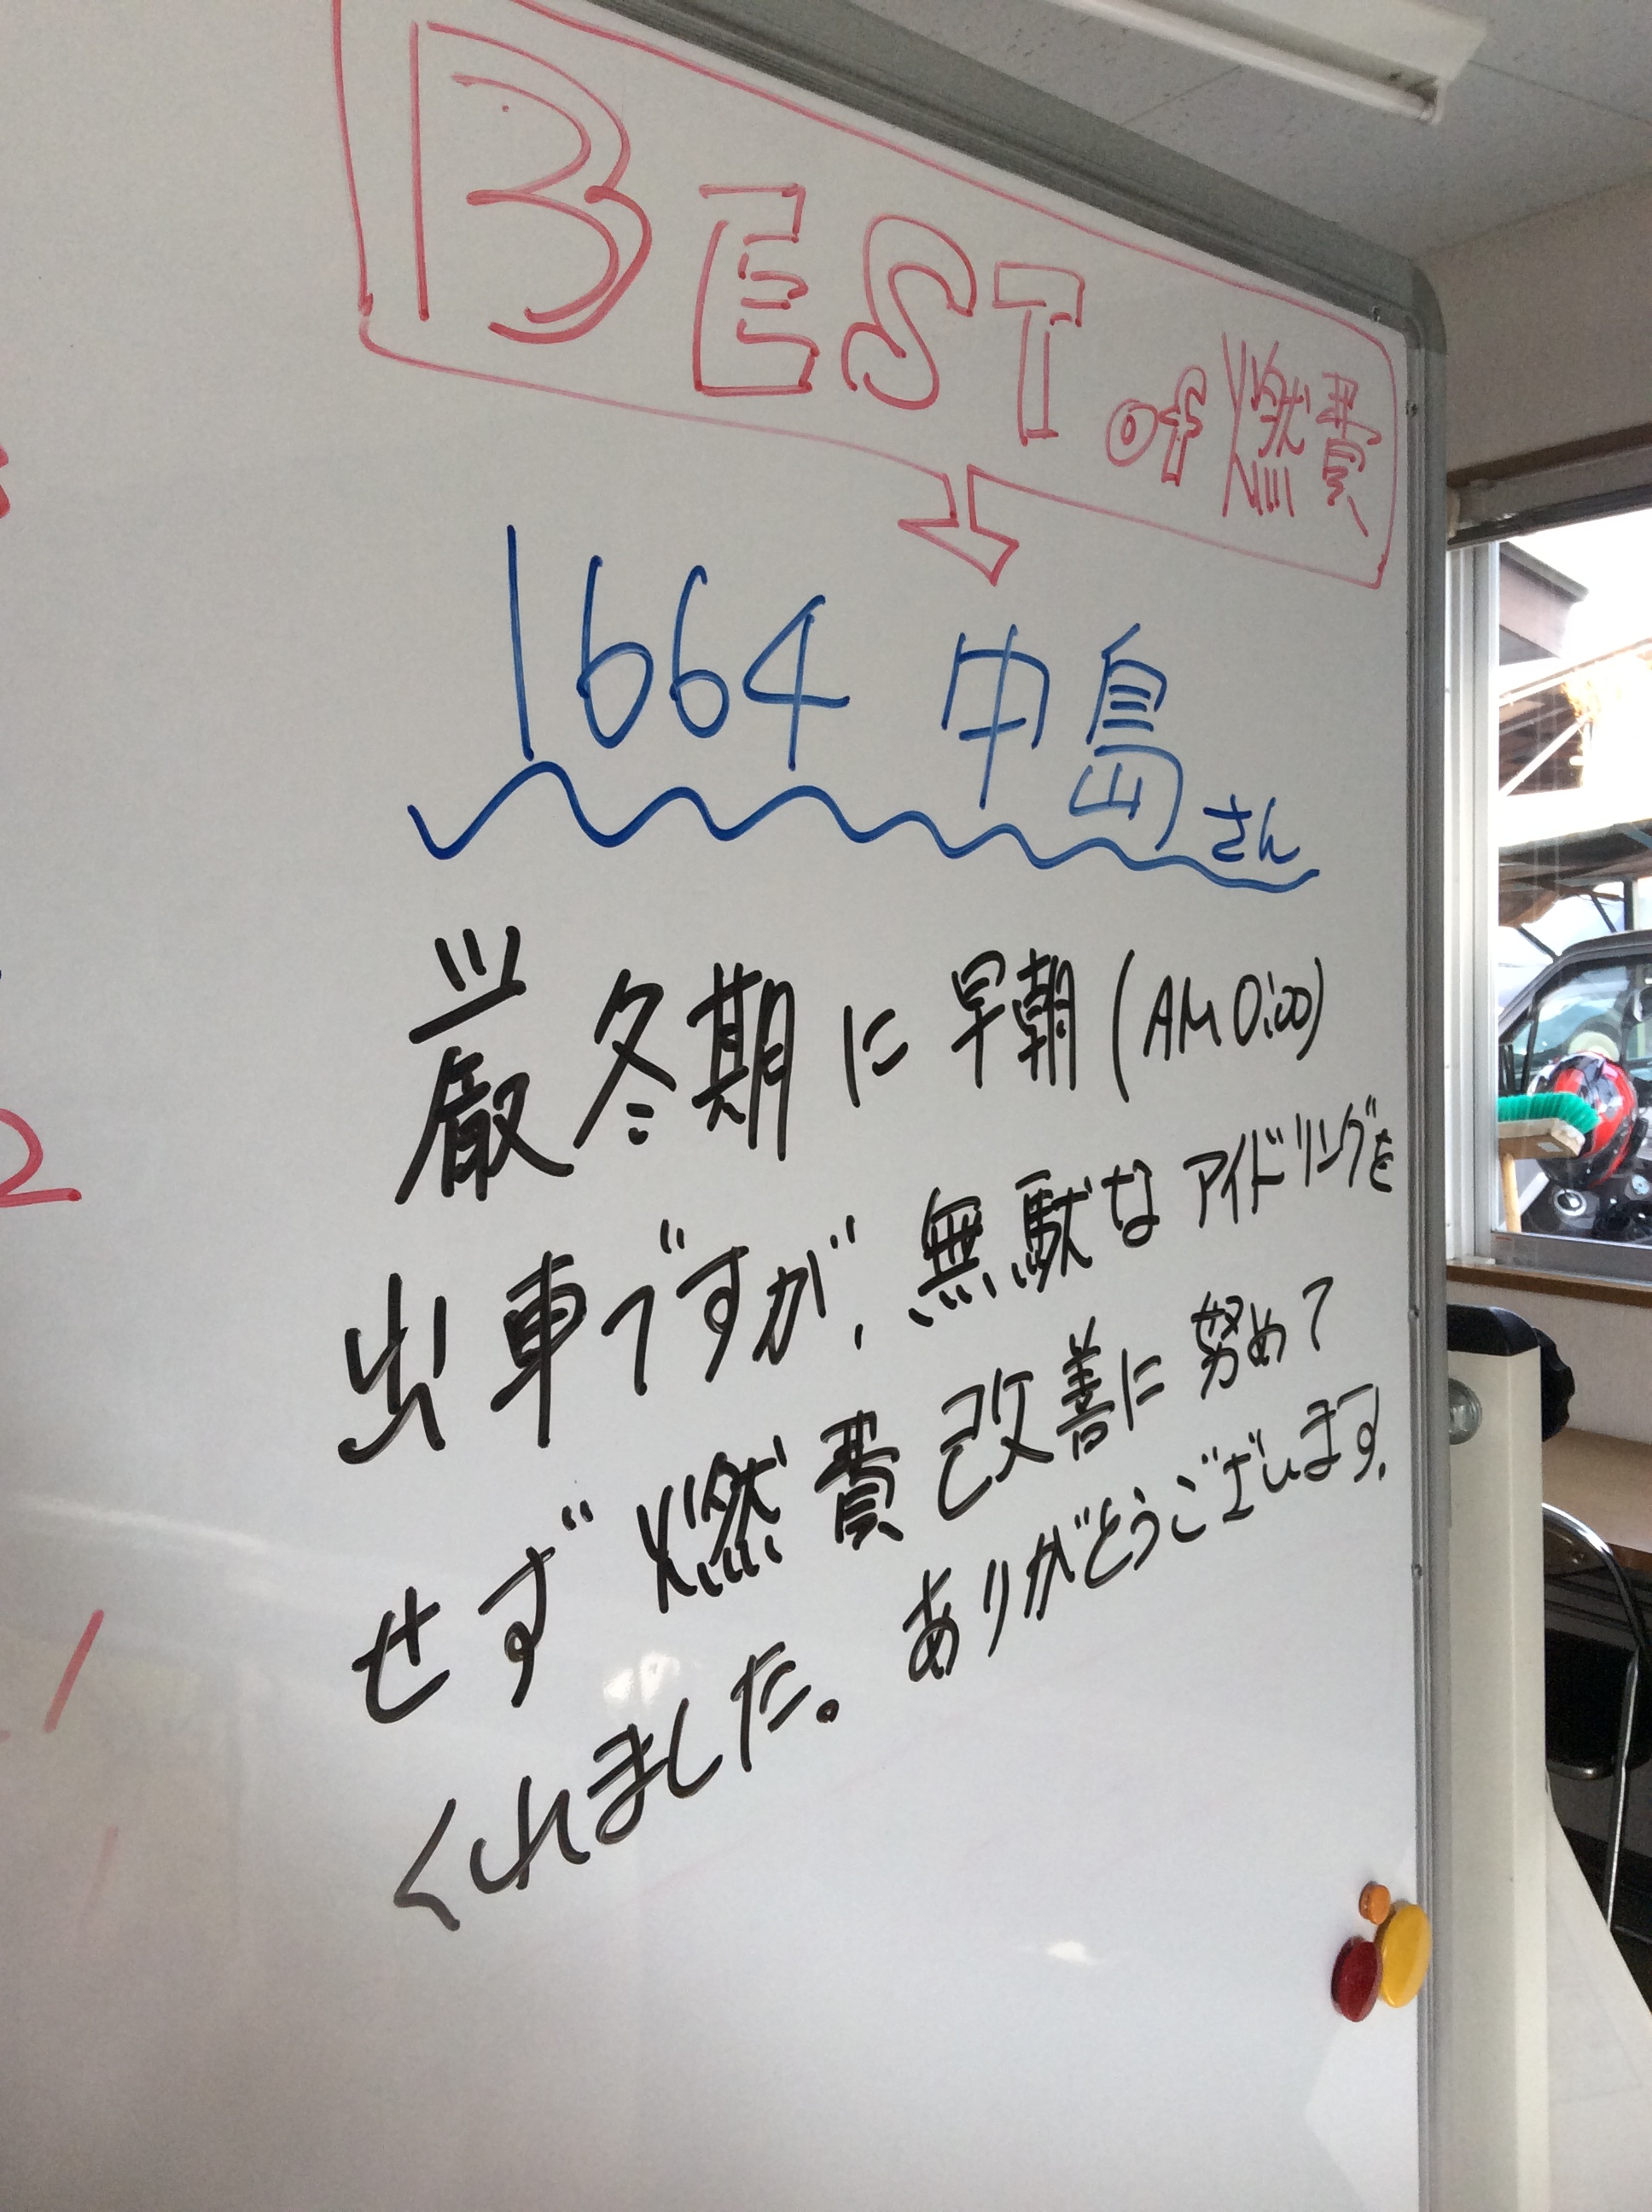 BEST of 燃費
1664 中島さん
厳冬期に早朝(AM0:00)
出車ですが、無駄なアイドリングを
せず燃費改善に努めて
くれました。ありがとうございます。
2